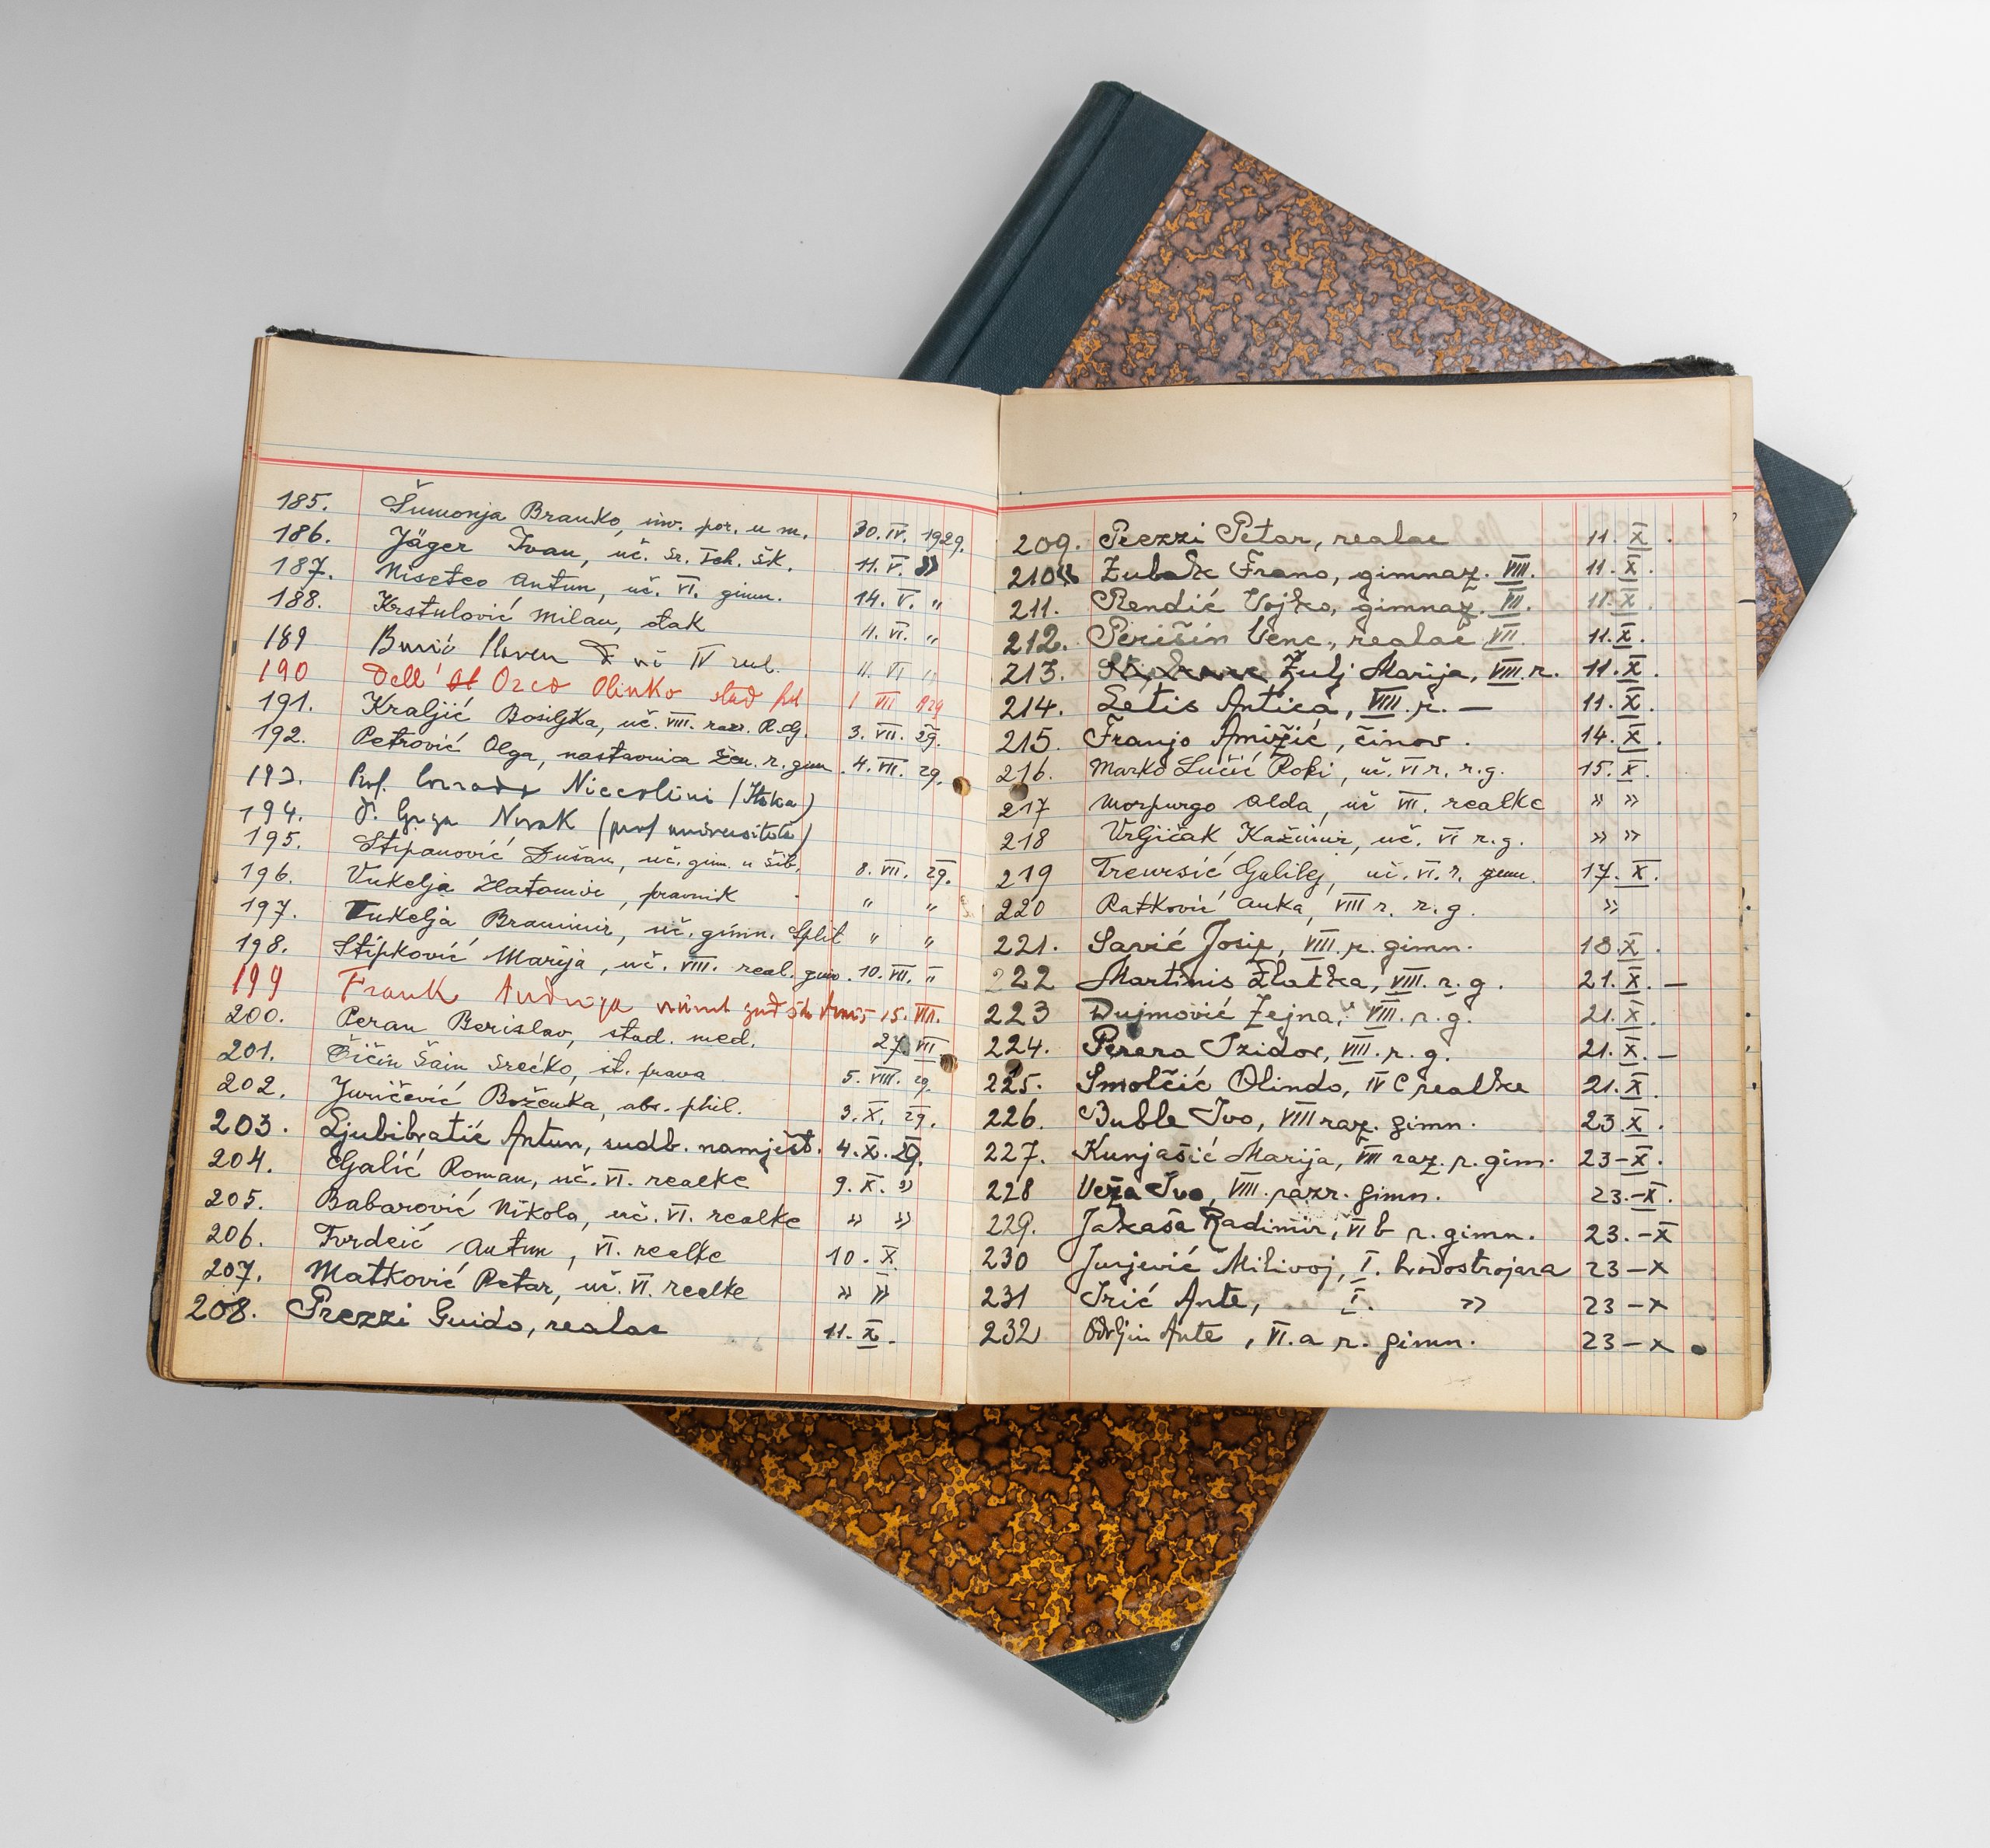 185. Šumonja Branko, inv. por. u m. 30. IV. 1929.
186. Jäger Ivan, uč. sr. teh. šk. 11. V. »
187. Niseteo Antun, uč. VI. gimn. 14. V. "
188. Krstulović Milan, đak 4. VI. "
189 IV 11. VI "
190 Dell' Orco Olinko stud 1 VII 929
191. Kraljić Bosiljka, uč. VIII. razr. R.g. 3. VII. 29.
192. Petrović Olga, nastavnica žen. r. gim. 4. VII. 29.
193. Prof. Corrado Niccolini
194. Dr. Grga Novak (prof universiteta)
195. Stipanović Dušan, uč. gim. u Šib. 8. VII. 29.
196. Vukelja Zlatomir, pravnik " "
197. Vukelja Branimir, uč. gimn. Split " "
198. Stipković Marija, uč. VIII. real. gim. 10. VII. "
199 Frank 15. VII.
200. Peran Berislav, stud. med. 27. VII
201. Čičin Šain Srećko, st. prava 5. VIII. 29.
202. Juričević Boženka, abs. phil. 3. X. 29.
203. Ljubibratić Antun, sudb. namješt. 4. X. 29.
204. Galić Roman, uč. VI. realke 9. X. »
205. Babarović Nikola, uč. VI. realke » »
206. Tvrdeić Antun, VI. realke 10. X.
207. Matković Petar, uč. VI. realke » »
208. Prezzi Guido, realac 11. X.
209. Pezzi Petar, realac 11. X.
210 Frano, gimnaz. VIII. 11. X.
211. Rendić Vojko, gimnaz. VII. 11. X.
212. Perišin Venc., realac VII 11. X.
213. Žulj Marija, VIII. r. 11. X.
214. Letis Antica, VIII. r. — 11. X.
215. Franjo Amižić, činov. 14. X.
216. Marko Lučić Roki, uč. VI r. r.g. 15. X.
217 Morpurgo Alda, uč VII. realke » »
218 Vrljičak Kažimir, uč. VI r.g. » »
219 Galilej, uč. VI. r. gimn. 17. X.
220 Ratković Anka, VIII r. r.g. »
221. Savić Josip, VIII. r. gimn. 18. X.
222 Martinis Zlatka, VIII. r. g. 21. X. —
223 Dujmović Zejna, VIII. r. g. 21. X.
224. Perera Izidor, VIII. r. g. 21. X. —
225. Smolčić Olindo, IV C realke 21. X.
226. Buble Ivo, VIII raz. gimn. 23. X.
227. Kunjašić Marija, VIII raz. r. gim. 23 – X.
228 Veža Ivo, VIII. razr. gimn. 23. – X.
229. Jakaša Radimir, VI b r. gimn. 23. – X
230 Jurjević Milivoj, I. brodostrojara 23 – X
231 Irić Ante, I. » 23 – X
232 Odrljin Ante, VI. a r. gimn. 23 – X